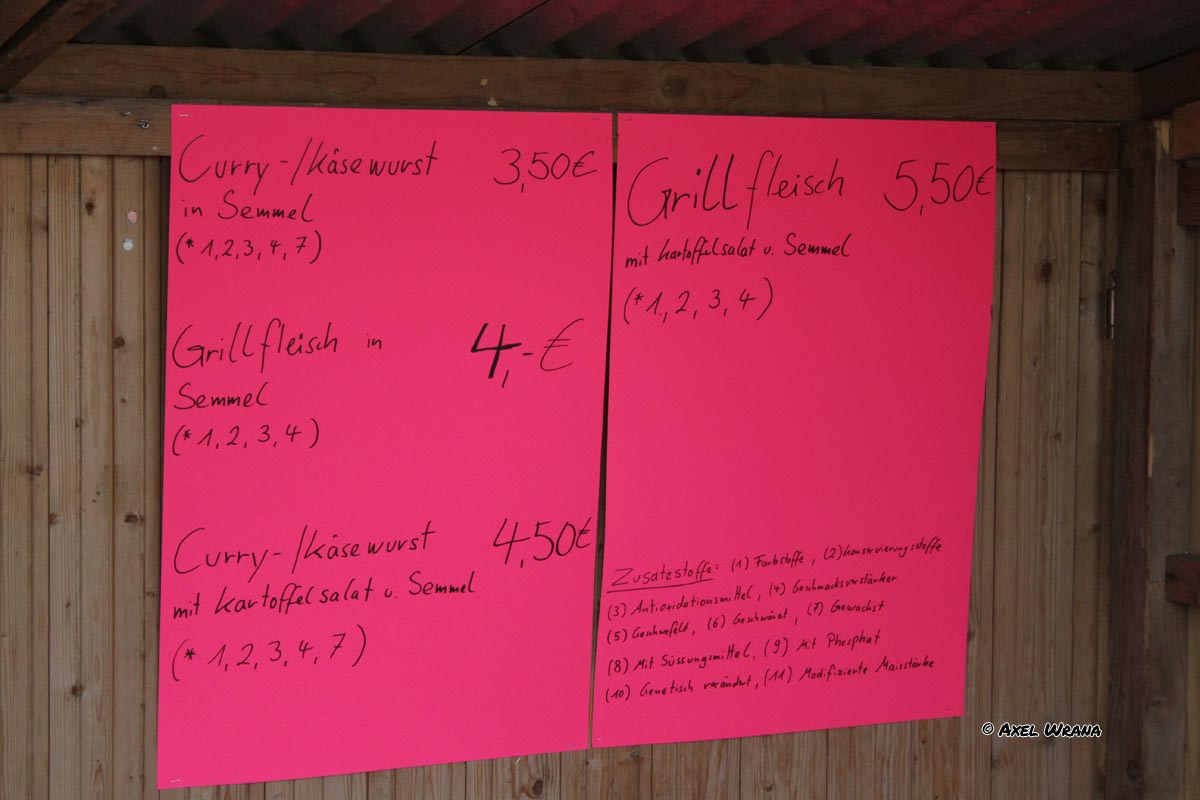 Curry-/Käsewurst 3,50€
in Semmel
(*1,2,3,4,7)
Grillfleisch in 4,-€
Semmel
(*1,2,3,4)
Curry-/Käsewurst 4,50€
mit Kartoffelsalat u. Semmel
(*1,2,3,4,7)
Grillfleisch 5,50€
mit Kartoffelsalat u. Semmel
(*1,2,3,4)
Zusatzstoffe: (1) Farbstoffe, (2) Konservierungsstoffe
(3) Antioxidationsmittel, (4) Geschmacksverstärker
(5) Geschwefelt, (6) Geschwärzt, (7) Gewachst
(8) Mit Süssungsmittel, (9) Mit Phosphat
(10) Genetisch verändert, (11) Modifizierte Maisstärke
© Axel Wrana